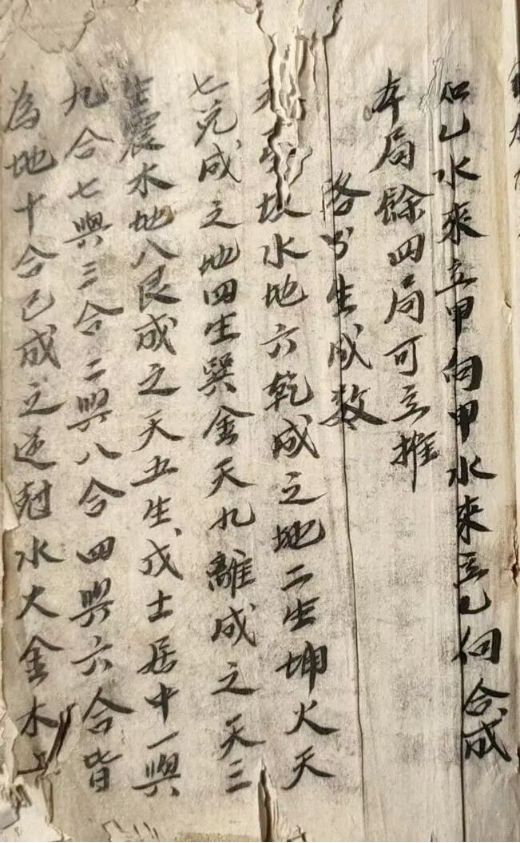 如乙水來立甲向甲水來立乙向合成
本局餘四局可立推
各少生成数
坎水地六乾成之地二生坤火天
七兑成之地四生巽金天九離成之天三
生震木地八艮成之天五生戊土居中一與
九合七與三合二與八合四與六合皆
為地十合已成之逆尅水火金木